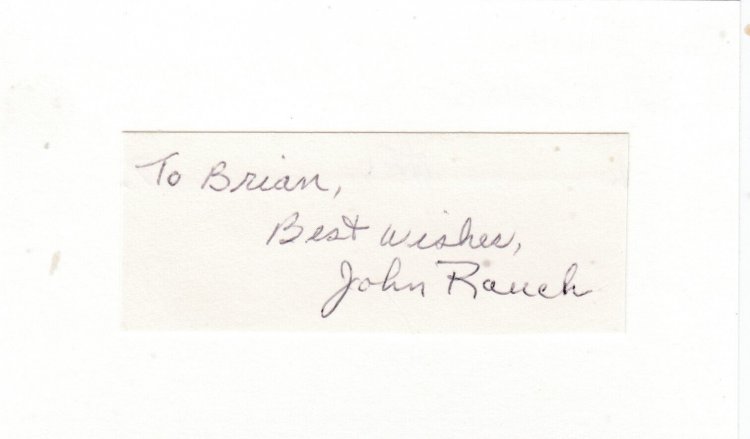 To Brian,
Best wishes,
John Rauch